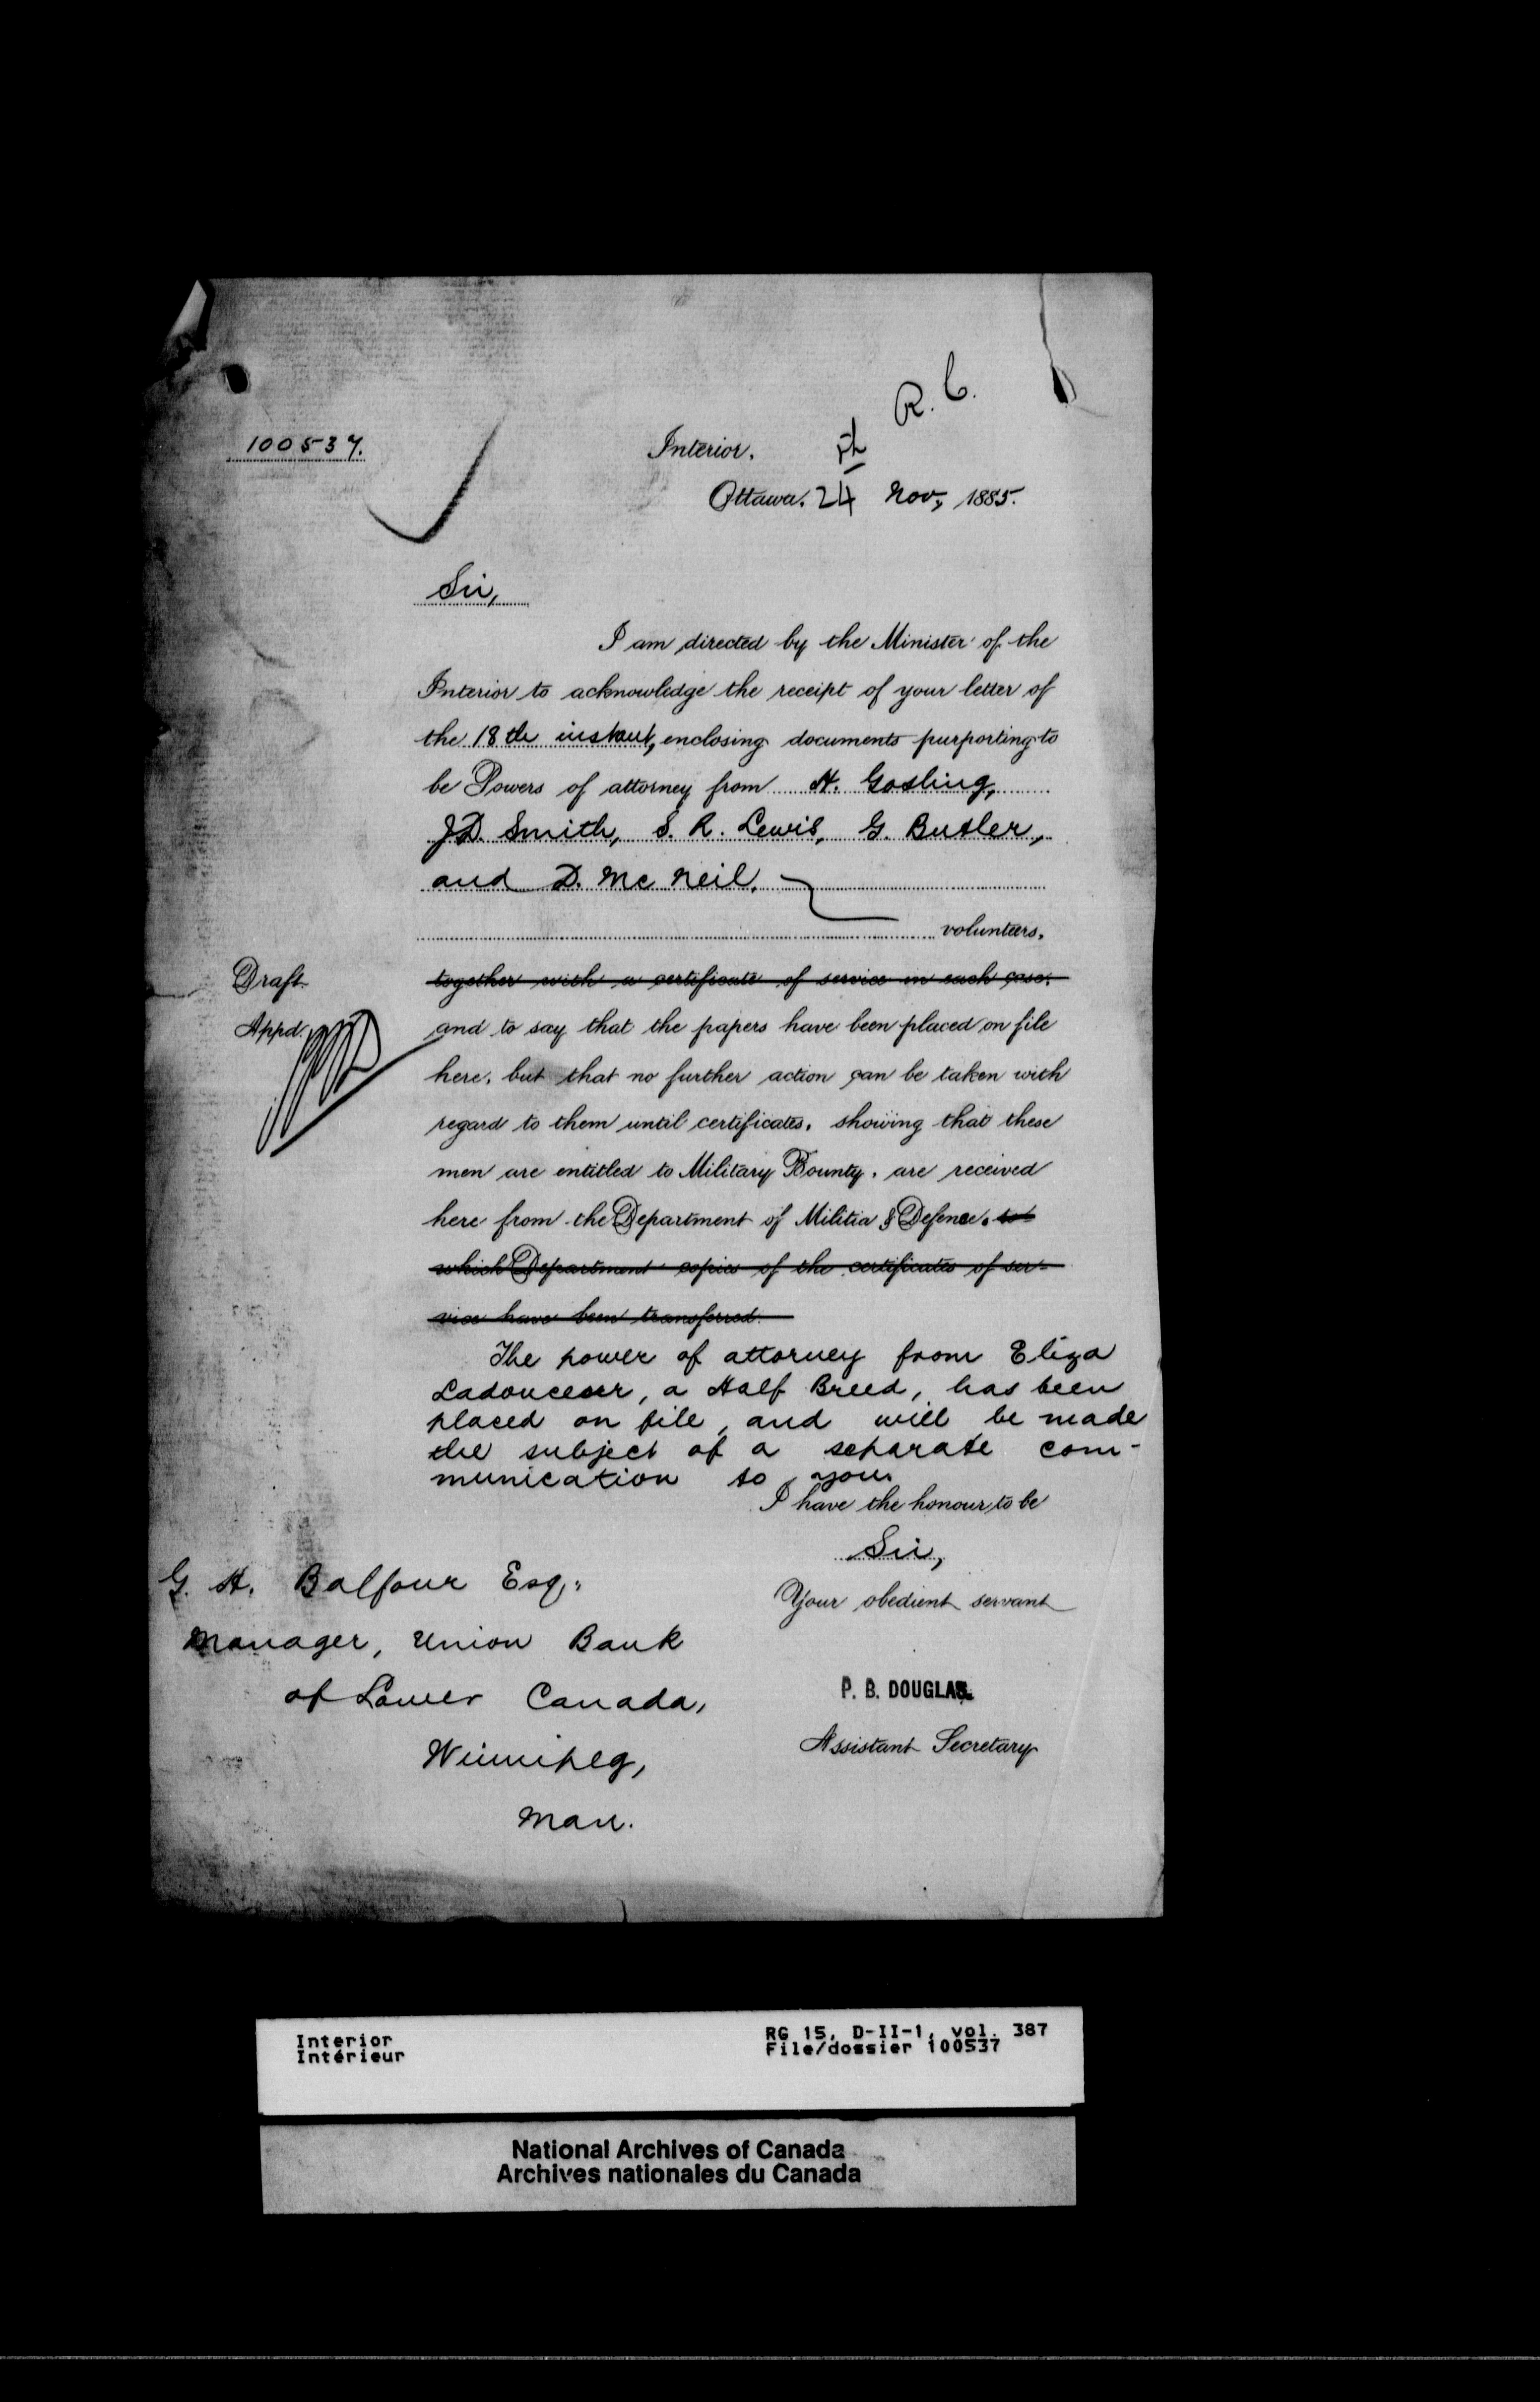 R. C.
100537.
Interior.
Ottawa. 24 Nov, 1885.
Sir,
I am directed by the Minister of the
Interior to acknowledge the receipt of your letter of
the 18th instant, enclosing documents purporting to
be Powers of attorney from H. Gosling,
J.D. Smith, S. R. Lewis, G. Butler,
and D. Mc Neil.
volunteers.
Draft
together with a certificate of service in each case.
Appd.
and to say that the papers have been placed on file
here, but that no further action can be taken with
regard to them until certificates, showing that these
men are entitled to Military Bounty, are received
here from the Department of Militia & Defence. to
which Department copies of the certificates of ser-
vice have been transferred.
The power of attorney from Eliza
Ladouceur, a Half Breed, has been
placed on file, and will be made
the subject of a separate com-
munication to you.
I have the honour to be
Sir,
Your obedient servant
P. B. DOUGLAS.
Assistant Secretary
G. H. Balfour Esq.
Manager, Union Bank
of Lower Canada,
Winnipeg,
Man.
Interior
Intérieur
RG 15, D-II-1, vol. 387
File/dossier 100537
National Archives of Canada
Archives nationales du Canada